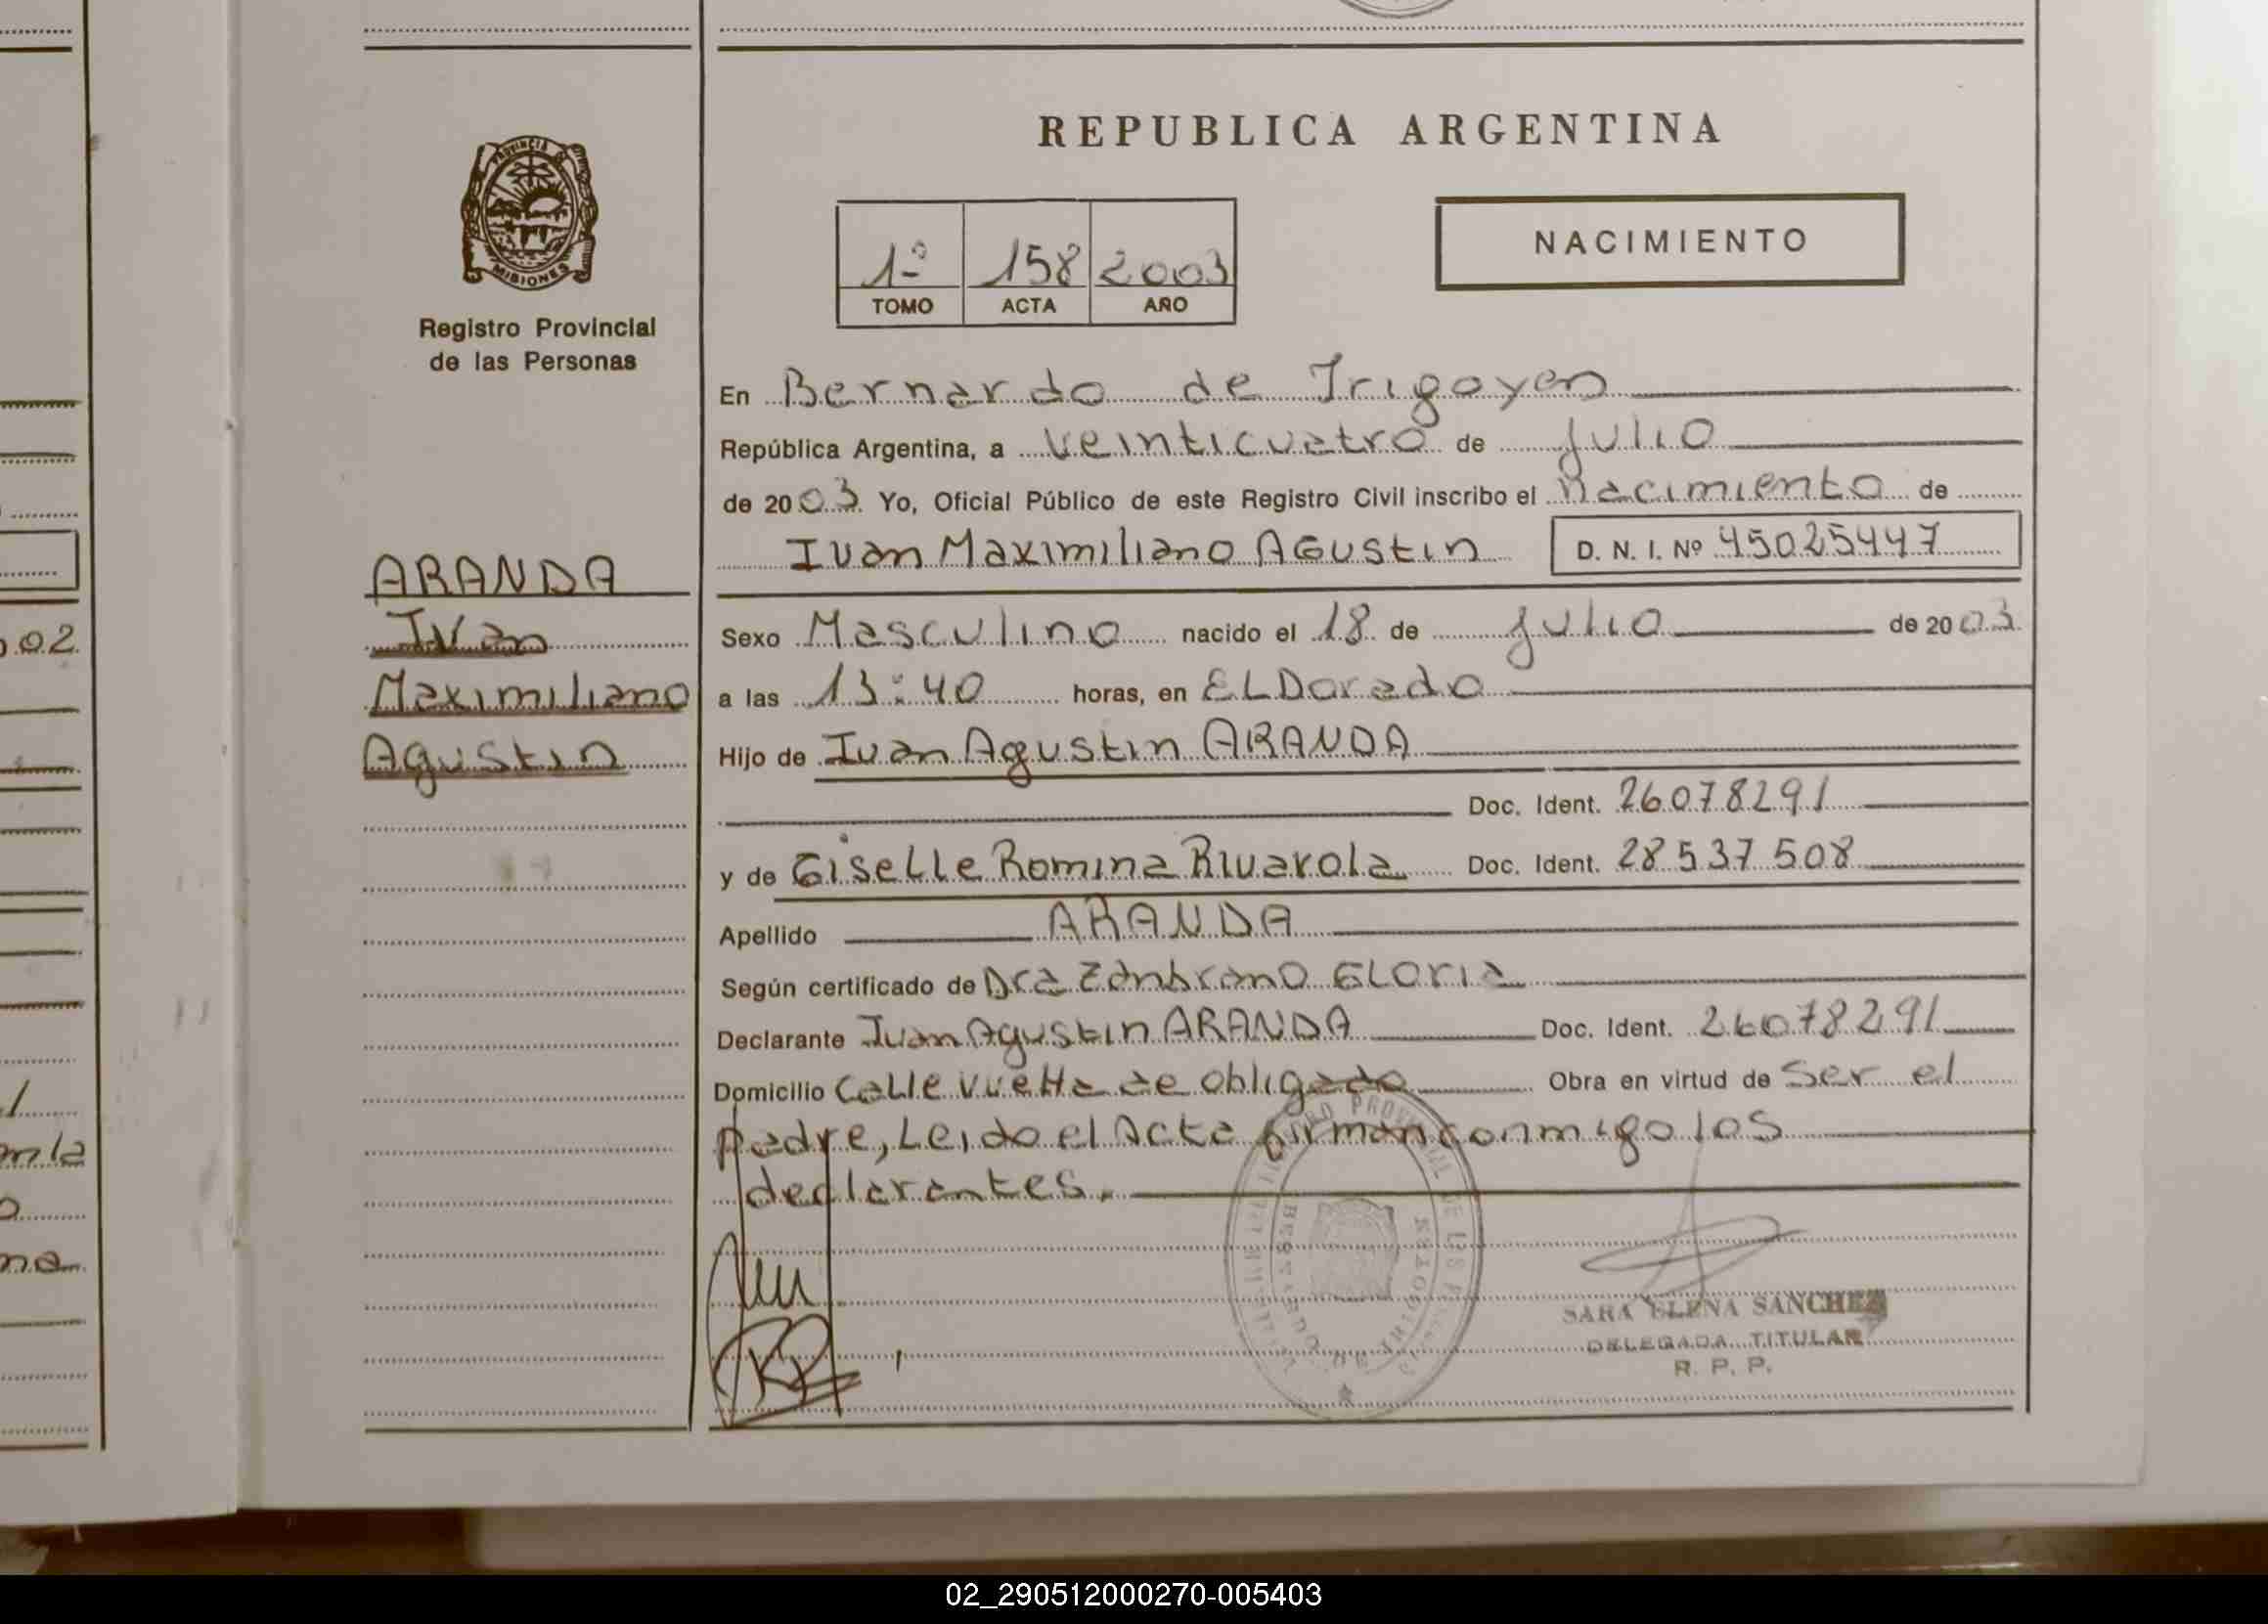 REPUBLICA ARGENTINA
PROVINCIA DE
MISIONES
Registro Provincial
de las Personas
1º 158 2003
TOMO ACTA AÑO
NACIMIENTO
En Bernardo de Irigoyen
República Argentina, a veinticuatro de julio
de 2003 Yo, Oficial Público de este Registro Civil inscribo el nacimiento de
Ivan Maximiliano Agustin D. N. I. Nº 45025447
ARANDA
Ivan
Maximiliano
Agustin
Sexo Masculino nacido el 18 de julio de 2003
a las 13:40 horas, en ELDorado
Hijo de Ivan Agustin ARANDA
Doc. Ident. 26078291
y de Giselle Romina Rivarola Doc. Ident. 28537508
Apellido ARANDA
Según certificado de Dra Zambrano Gloria
Declarante Ivan Agustin ARANDA Doc. Ident. 26078291
Domicilio Calle Vuelta de obligado Obra en virtud de Ser el
padre, Leido el Acta firman conmigo los
declarantes.
SARA ELENA SANCHEZ
DELEGADA TITULAR
R. P. P.
02_290512000270-005403